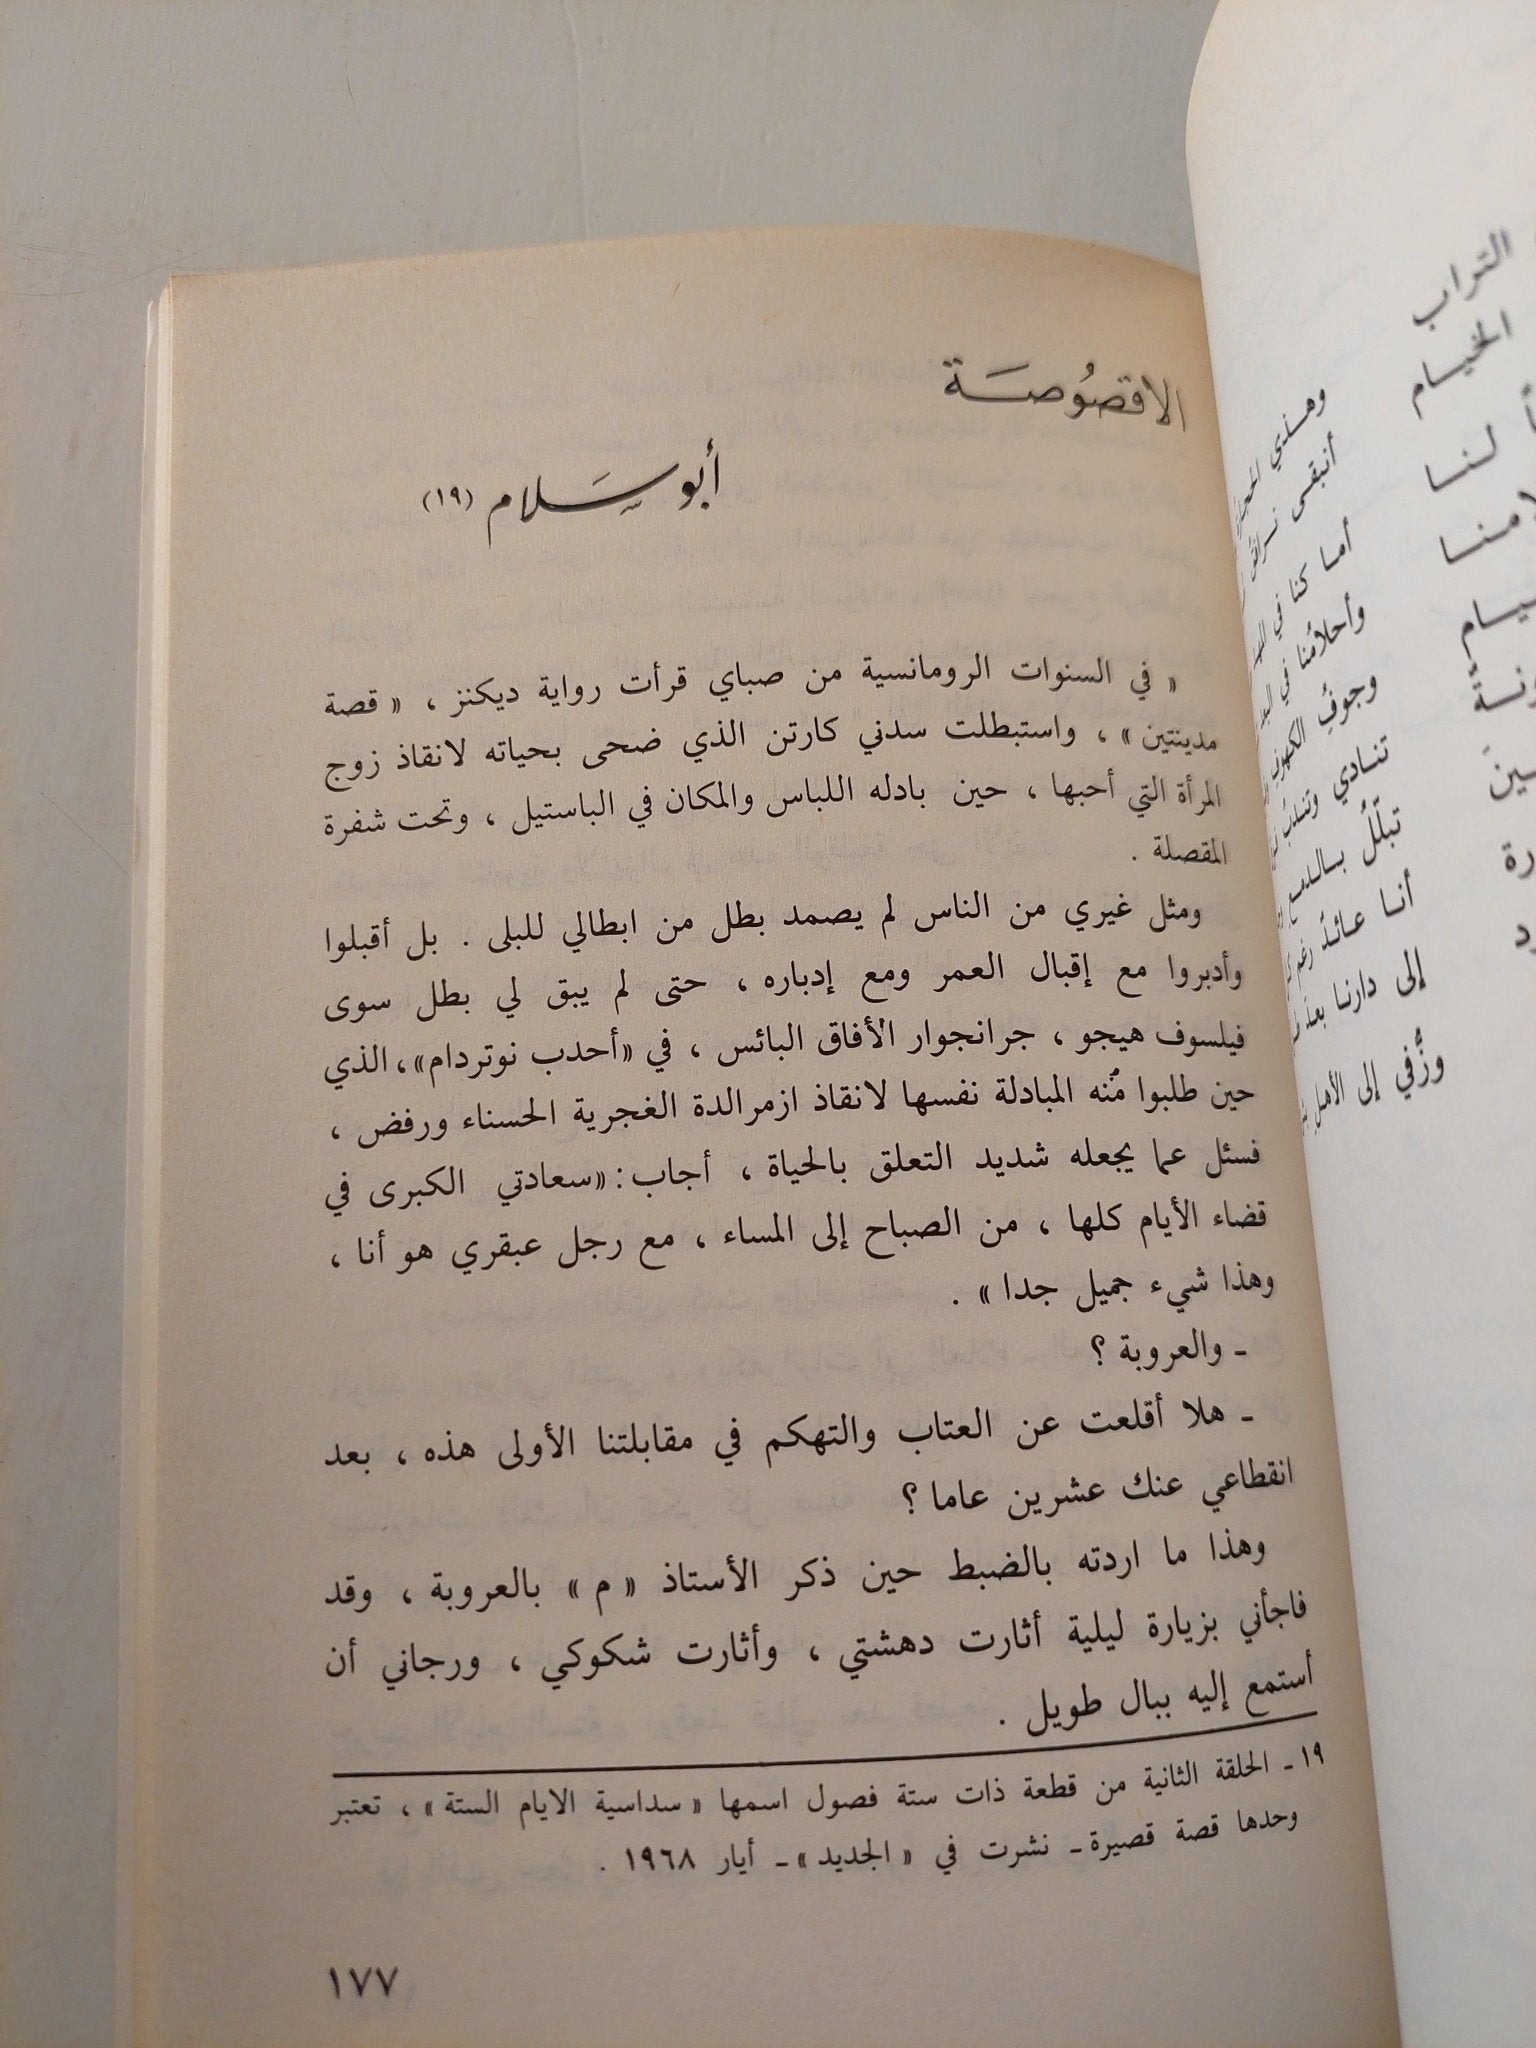 الاقصُوصَة
أبو سَلام (١٩)
« في السنوات الرومانسية من صباي قرأت رواية ديكنز ، « قصة
مدينتين » ، واستبطلت سدني كارتن الذي ضحى بحياته لانقاذ زوج
المرأة التي أحبها ، حين بادله اللباس والمكان في الباستيل ، وتحت شفرة
المقصلة .
ومثل غيري من الناس لم يصمد بطل من ابطالي للبلى . بل أقبلوا
وأدبروا مع إقبال العمر ومع إدباره ، حتى لم يبق لي بطل سوى
فيلسوف هيجو ، جرانجوار الأفاق البائس ، في «أحدب نوتردام»، الذي
حين طلبوا مُنه المبادلة نفسها لانقاذ ازمرالدة الغجرية الحسناء ورفض ،
فسئل عما يجعله شديد التعلق بالحياة ، أجاب : «سعادتي الكبرى في
قضاء الأيام كلها ، من الصباح إلى المساء ، مع رجل عبقري هو أنا ،
وهذا شيء جميل جدا » .
ـ والعروبة ؟
ـ هلا أقلعت عن العتاب والتهكم في مقابلتنا الأولى هذه ، بعد
انقطاعي عنك عشرين عاما ؟
وهذا ما اردته بالضبط حين ذكر الأستاذ « م » بالعروبة ، وقد
فاجأني بزيارة ليلية أثارت دهشتي ، وأثارت شكوكي ، ورجاني أن
أستمع إليه ببال طويل .
١٩ ـ الحلقة الثانية من قطعة ذات ستة فصول اسمها « سداسية الايام الستة » ، تعتبر
وحدها قصة قصيرة ـ نشرت في « الجديد » ـ أيار ١٩٦٨ .
١٧٧
وهـذي
أنبقى
أما كنا في
وأحلامُنا في
وجوفُ الكهوف
تنادي
تبلّلُ
أنا عائدٌ رغم
إلى دارنا بعد
وزُّفي إلى الأهل
التراب
الخيـام
لنـا